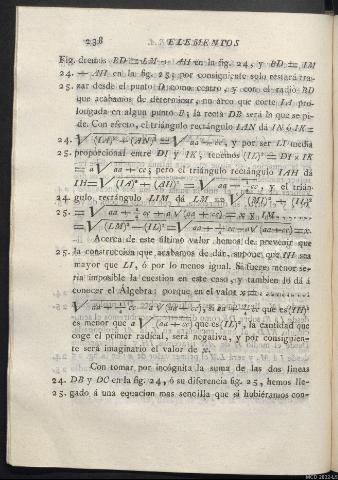 238 ELEMENTOS
Fig. dremos BD = LM + AH en la fig. 24, y BD = IM
24. + AH en la fig. 25; por consiguiente solo restará tra-
25. zar desde el punto D como centro, y con el radio BD
que acabamos de determinar, un arco que corte IA pro-
longada en algun punto B; la recta DB será la que se pi-
de. Con efecto, el triángulo rectángulo IAN dá IN ó IK =
24. √(IA)² + (AN)² = √aa + cc, y por ser LI media
25. proporcional entre DI y IK, tenemos (IL)² = DI x IK
= a√aa + cc; pero el triángulo rectángulo IAH dá
IH = √(IA)² + (AH)² = √aa + ¼cc, y el trián-
24. gulo rectángulo LIM dá LM = √(MI)² + (IL)²
25. = √aa + ¼cc + a√(aa + cc) = x y IM
= √(LM)² — (IL)² = √aa + ¼cc — a√(aa + cc) = x.
Acerca de este último valor hemos de prevenir que
25. la construccion que acabamos de dar, supone que IH sea
mayor que LI, ó por lo menos igual. Si fuere menor se-
ría imposible la cuestion en este caso, y tambien lo dá á
conocer el Álgebra; porque en el valor x =
√aa + ¼cc — a√(aa + cc), si aa + ¼cc que es (IH)²
es menor que a√(aa + cc) que es (IL)², la cantidad que
coge el primer radical, será negativa, y por consiguien-
te será imaginario el valor de x.
Con tomar por incógnita la suma de las dos lineas
24. DB y DC en la fig. 24, ó su diferencia fig. 25, hemos lle-
25. gado á una equacion mas sencilla que si hubiéramos con-